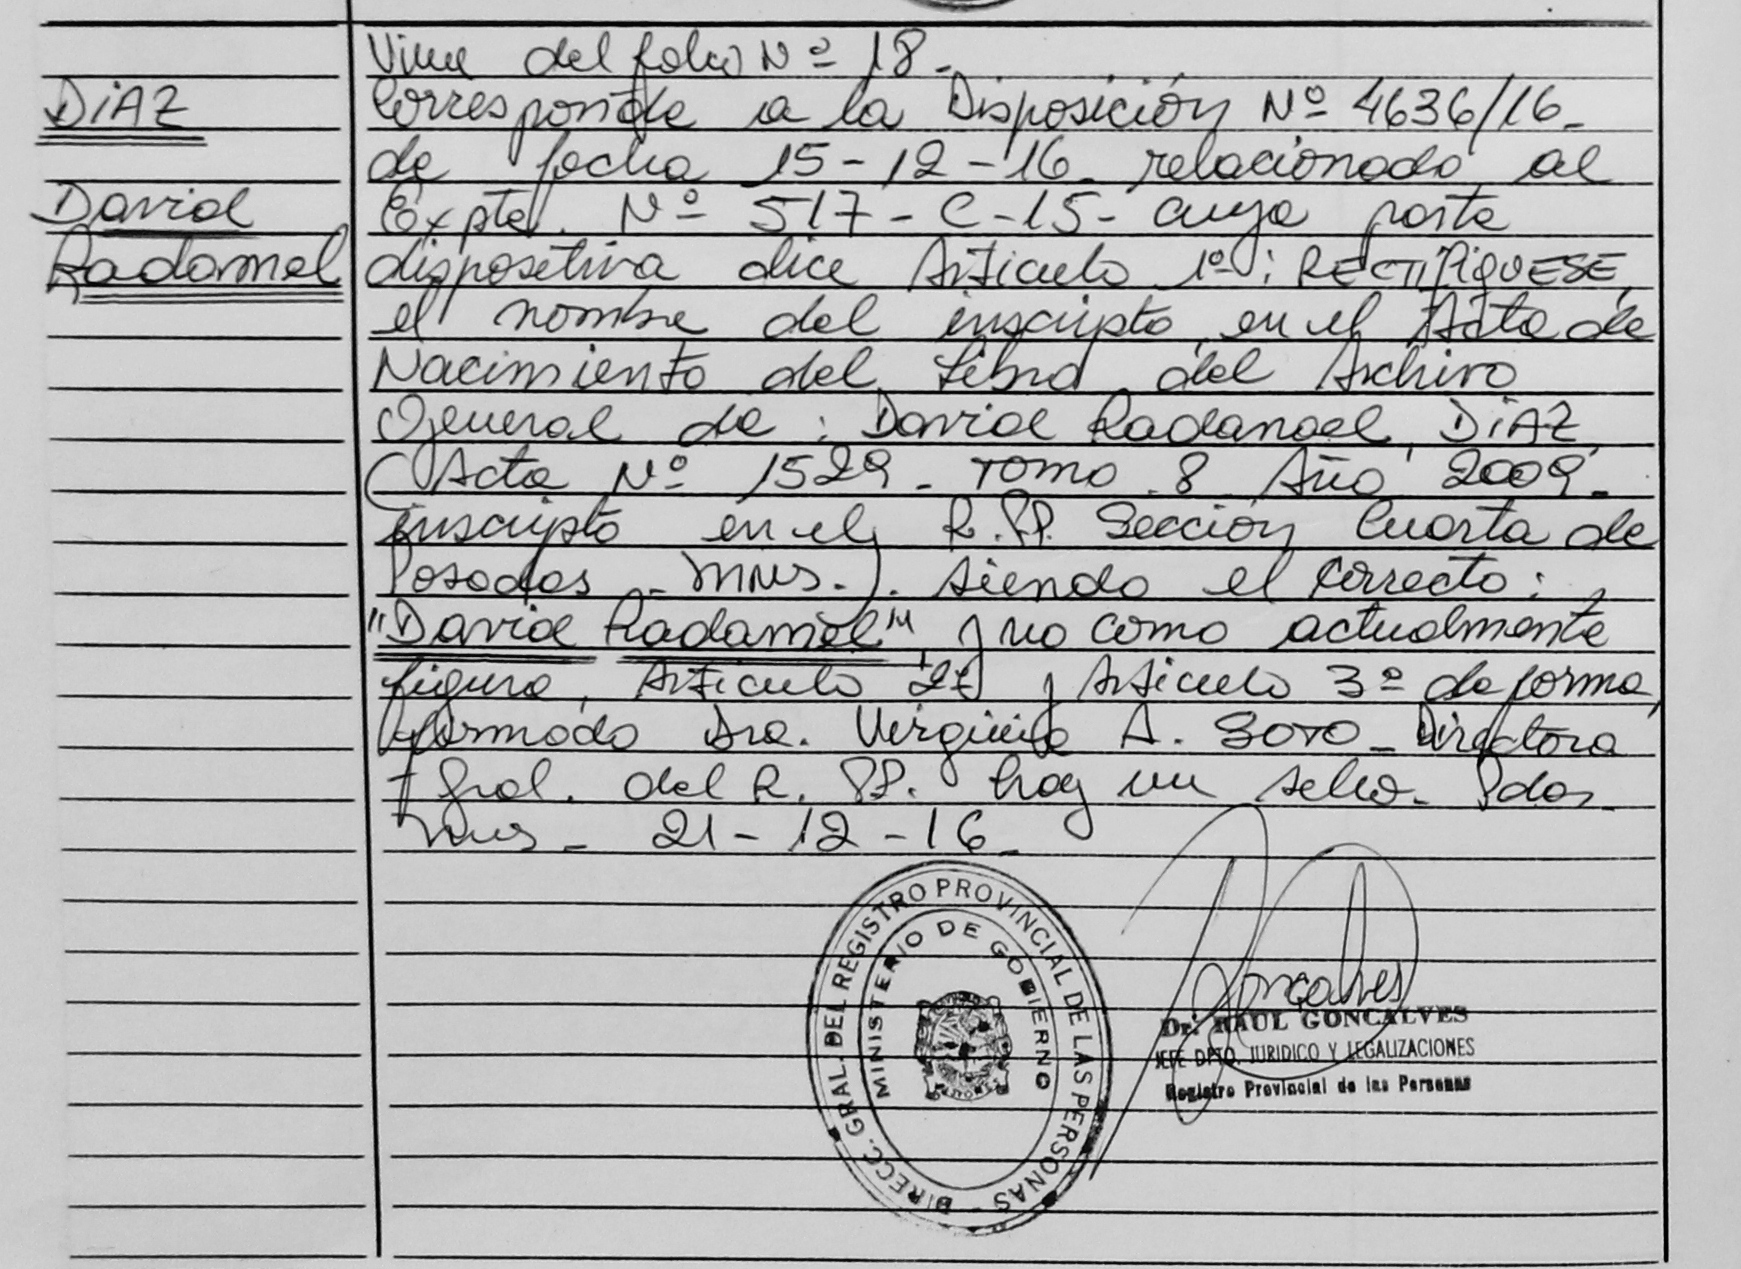 Viene del folio Nº 18-
DiAZ
Corresponde a la Disposición Nº 4636/16-
de fecha 15-12-16 relacionado al
David
Expte. Nº 517-C-15- cuya parte
Radamel
dispositiva dice Artículo 1º: RECTIFIQUESE,
el nombre del inscripto en el Acta de
Nacimiento del Libro del Archivo
General de: David Radanael DiAZ,
(Acta Nº 1529- Tomo 8 Año 2009-
inscripto en el R.PP. Sección Cuarta de
Posadas - Mnes.). siendo el correcto:
"David Radamel" y no como actualmente
figura, Artículo 2º y Artículo 3º de forma,
firmado Dra. Virginia A. SOTO- Directora
Gral. del R. PP. hay un sello- Pdas-
Mnes- 21-12-16-
DIRECC. GRAL. DEL REGISTRO PROVINCIAL DE LAS PERSONAS -
MINISTERIO DE GOBIERNO
Goncalves
Dr. RAUL GONCALVES
JEFE DPTO. JURIDICO Y LEGALIZACIONES
Registro Provincial de las Personas